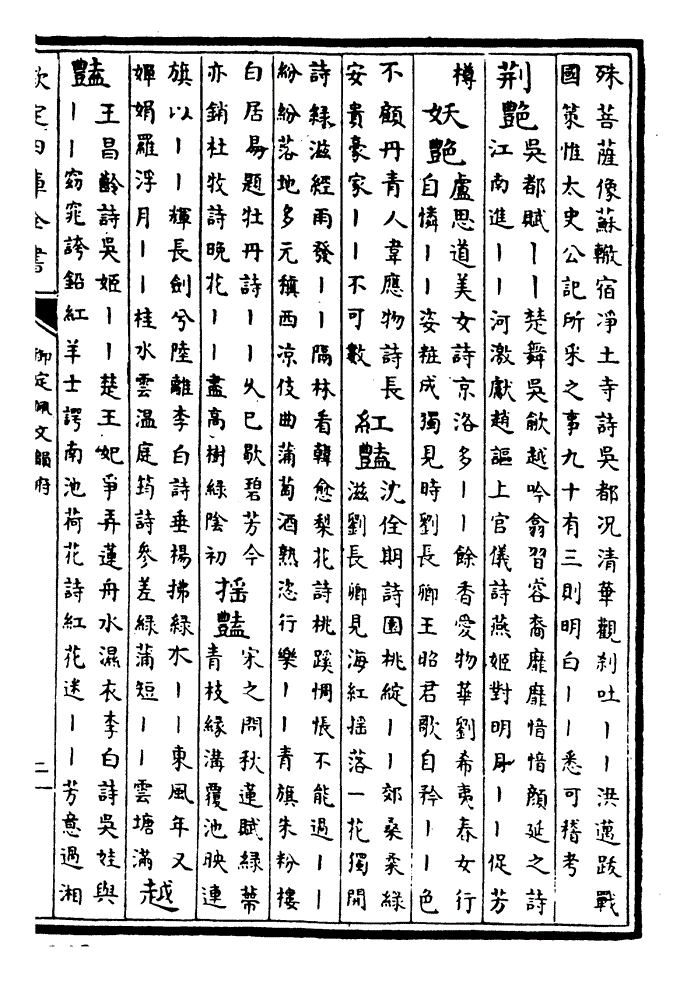 殊菩薩像蘇轍宿淨土寺詩吳都况清華觀刹吐丨丨洪邁跋戰
國策惟太史公記所采之事九十有三則明白丨丨悉可稽考
荆豔
吳都賦丨丨楚舞吳歈越吟翕習容裔靡靡愔愔顔延之詩
江南進丨丨河激獻趙謳上官儀詩燕姬對明月丨丨促芳
樽
妖豔
盧思道美女詩京洛多丨丨餘香愛物華劉希夷春女行
自憐丨丨姿粧成獨見時劉長卿王昭君歌自矜丨丨色
不顧丹青人韋應物詩長
安貴豪家丨丨不可數
紅豔
沈佺期詩園桃綻丨丨郊桑柔綠
滋劉長卿見海紅摇落一花獨開
詩綠滋經雨發丨丨隔林看韓愈梨花詩桃蹊惆悵不能過丨丨
紛紛落地多元稹西凉伎曲蒲萄酒熟恣行樂丨丨青旗朱粉樓
白居易題牡丹詩丨丨久已歇碧芳今
亦銷杜牧詩晚花丨丨盡高樹綠陰初
摇豔
宋之問秋蓮賦綠蔕
青枝緣溝覆池映連
旗以丨丨輝長劍兮陸離李白詩垂楊拂綠水丨丨東風年又
嬋娟羅浮月丨丨桂水雲温庭筠詩參差綠蒲短丨丨雲塘滿
越
豔
王昌齡詩吳姬丨丨楚王妃爭弄蓮舟水濕衣李白詩吳娃與
丨丨窈窕誇鉛紅羊士諤南池荷花詩紅花迷丨丨芳意過湘
欽定四庫全書
御定佩文韻府
二一